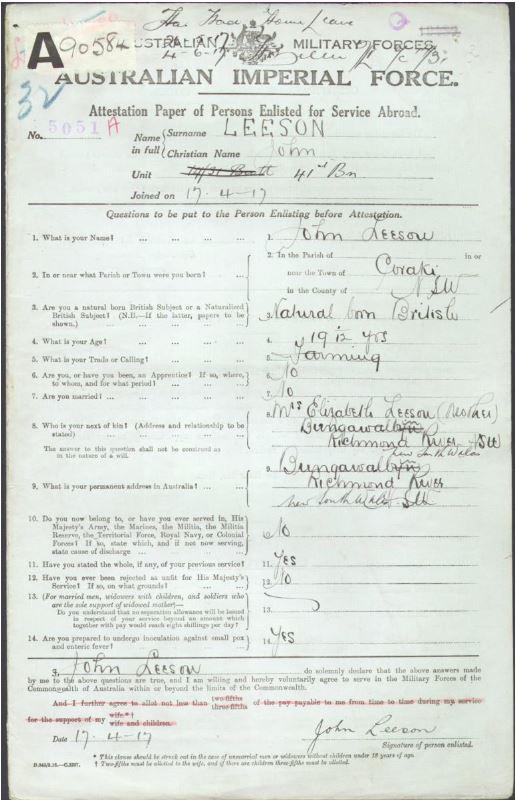 A 90584
AUSTRALIAN MILITARY FORCES.
AUSTRALIAN IMPERIAL FORCE.
32
Attestation Paper of Persons Enlisted for Service Abroad.
No. 5051 A
Name in full { Surname LEESON
Christian Name John
Unit 41st Bn
Joined on 17.4-17
Questions to be put to the Person Enlisting before Attestation.
1. What is your Name? ... ... ... ... 1. John Leeson
2. In or near what Parish or Town were you born? ... 2. In the Parish of in or
near the Town of Coraki
in the County of NSW
3. Are you a natural born British Subject or a Naturalized
British Subject? (N.B.—If the latter, papers to be
shown.) ... ... ... ... 3. Natural born British
4. What is your Age? ... ... ... ... 4. 19 1/2 yrs
5. What is your Trade or Calling? ... ... ... 5. Farming
6. Are you, or have you been, an Apprentice? If so, where,
to whom, and for what period? ... ... ... 6. No
7. Are you married? ... ... ... ... 7. No
8. Who is your next of kin? (Address and relationship to be
stated) ... ... ... ... 8. Mrs Elizabeth Leeson (Mother)
Bungawalbyn
Richmond River NSW
New South Wales
The answer to this question shall not be construed as
in the nature of a will.
9. What is your permanent address in Australia? ... ... 9. Bungawalbyn
Richmond River
New South Wales
10. Do you now belong to, or have you ever served in, His
Majesty's Army, the Marines, the Militia, the Militia
Reserve, the Territorial Force, Royal Navy, or Colonial
Forces? If so, state which, and if not now serving,
state cause of discharge ... ... ... No
11. Have you stated the whole, if any, of your previous service? 11. Yes
12. Have you ever been rejected as unfit for His Majesty's
Service? If so, on what grounds? ... ... 12. No
13. (For married men, widowers with children, and soldiers who
are the sole support of widowed mother)—
Do you understand that no separation allowance will be issued
in respect of your service beyond an amount which
together with pay would reach eight shillings per day? 13.
14. Are you prepared to undergo inoculation against small pox
and enteric fever? ... ... ... ... 14. Yes
I, John Leeson do solemnly declare that the above answers made
by me to the above questions are true, and I am willing and hereby voluntarily agree to serve in the Military Forces of the
Commonwealth of Australia within or beyond the limits of the Commonwealth.
And I further agree to allot not less than two-fifths three-fifths of the pay payable to me from time to time during my service
for the support of my wife.*† wife and children.
Date 17.4-17 John Leeson
Signature of person enlisted.
* This clause should be struck out in the case of unmarried men or widowers without children under 18 years of age.
† Two-fifths must be allotted to the wife, and if there are children three-fifths must be allotted.